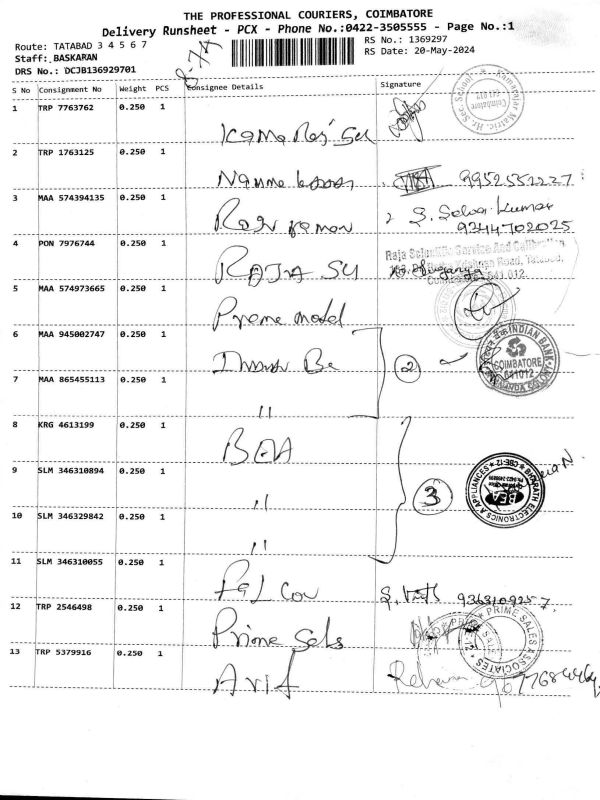 THE PROFESSIONAL COURIERS, COIMBATORE
Delivery Runsheet - PCX - Phone No.:0422-3505555 - Page No.:1
Route: TATABAD 3 4 5 6 7
RS No.: 1369297
Staff: BASKARAN
RS Date: 20-May-2024
DRS No.: DCJB136929701
S No Consignment No Weight PCS Consignee Details Signature
1 TRP 7763762 0.250 1
2 TRP 1763125 0.250 1 9952551227
3 MAA 574394135 0.250 1 S. Selva Kumar
9344702025
4 PON 7976744 0.250 1 RAJA SU
Raja Scientific Service And
641 012
5 MAA 574973665 0.250 1 Prime model
6 MAA 945002747 0.250 1 2
INDIAN BANK
COIMBATORE
641012
7 MAA 865455113 0.250 1 "
8 KRG 4613199 0.250 1 BEA
9 SLM 346310894 0.250 1 " 3
BHARATH ELECTRONICS & APPLIANCES CBE-12
BEA
10 SLM 346329842 0.250 1 "
11 SLM 346310055 0.250 1 9363109257
12 TRP 2546498 0.250 1 Prime Sals
PRIME SALES ASSOCIATES
13 TRP 5379916 0.250 1 Arif